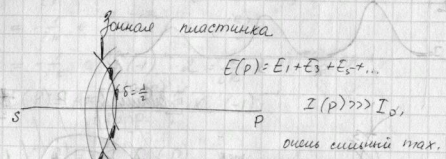 Зонная пластинка
E(p) = E₁ + E₃ + E₅ + ...
δ = λ/2
I(p) >>> I₀,
S P
очень сильный max.